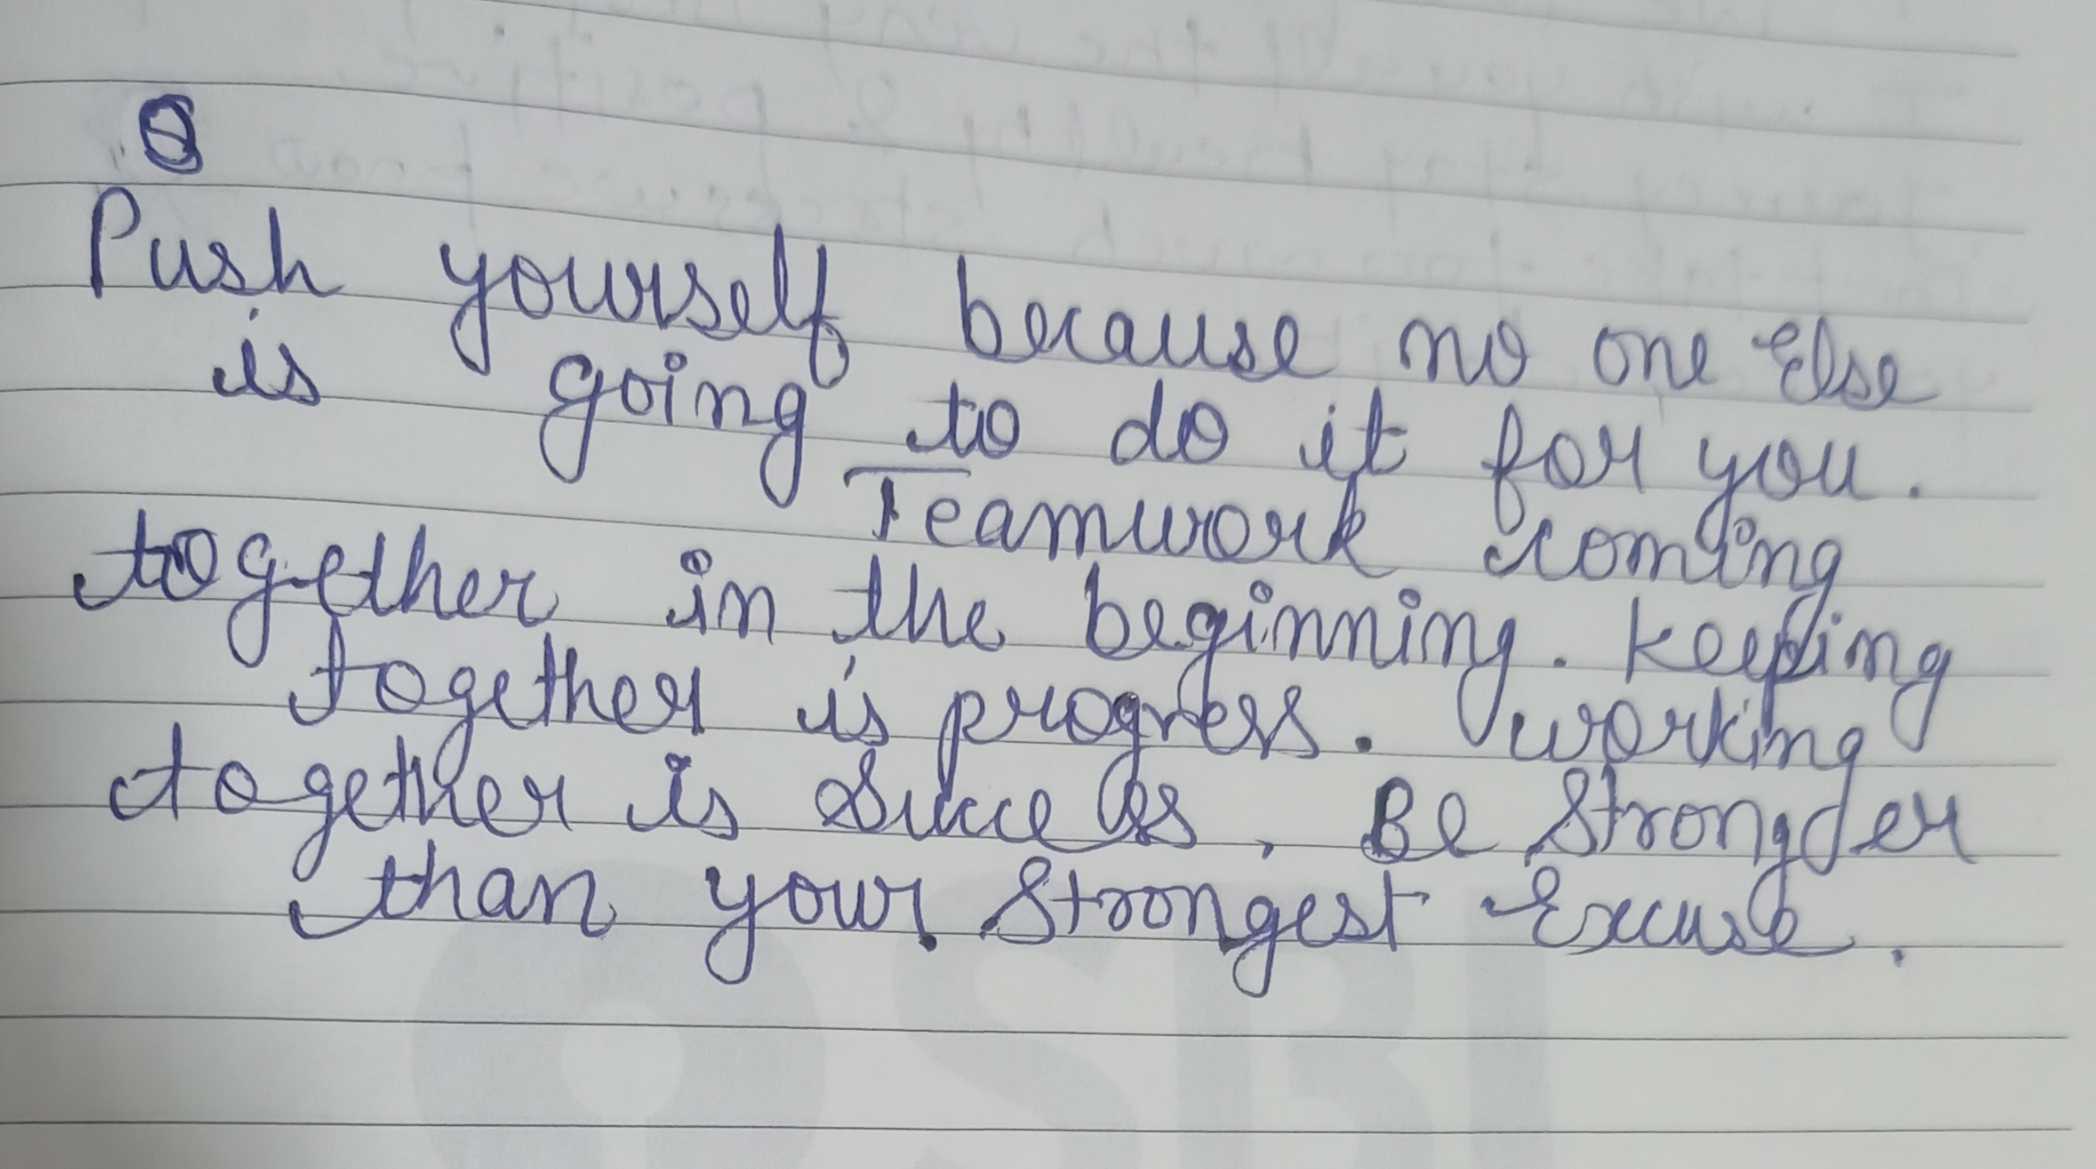 Push yourself because no one Else
is going to do it for you.
Teamwork coming
together in the beginning. keeping
together is progress. working
together is Success, Be Strongder
than your Strongest Excuse.
SBI